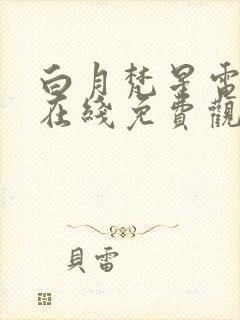 白月梵星電
在綫免費觀
貝雷